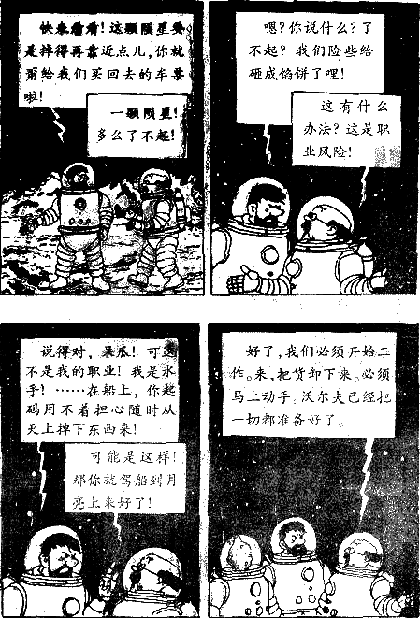 快来看看！这颗陨星要
是摔得再靠近点儿，你就
甭给我们买回去的车票
啦！
一颗陨星！
多么了不起！
嗯？你说什么？了
不起？我们险些给
砸成馅饼了哩！
这有什么
办法？这是职
业风险！
说得对，呆瓜！可这
不是我的职业！我是水
手！……在船上，你起
码用不着担心随时从
天上掉下东西来！
可能是这样！
那你就驾船到月
亮上来好了！
好了，我们必须开始工
作。来，把货卸下来。必须
马上动手。沃尔夫已经把
一切都准备好了。